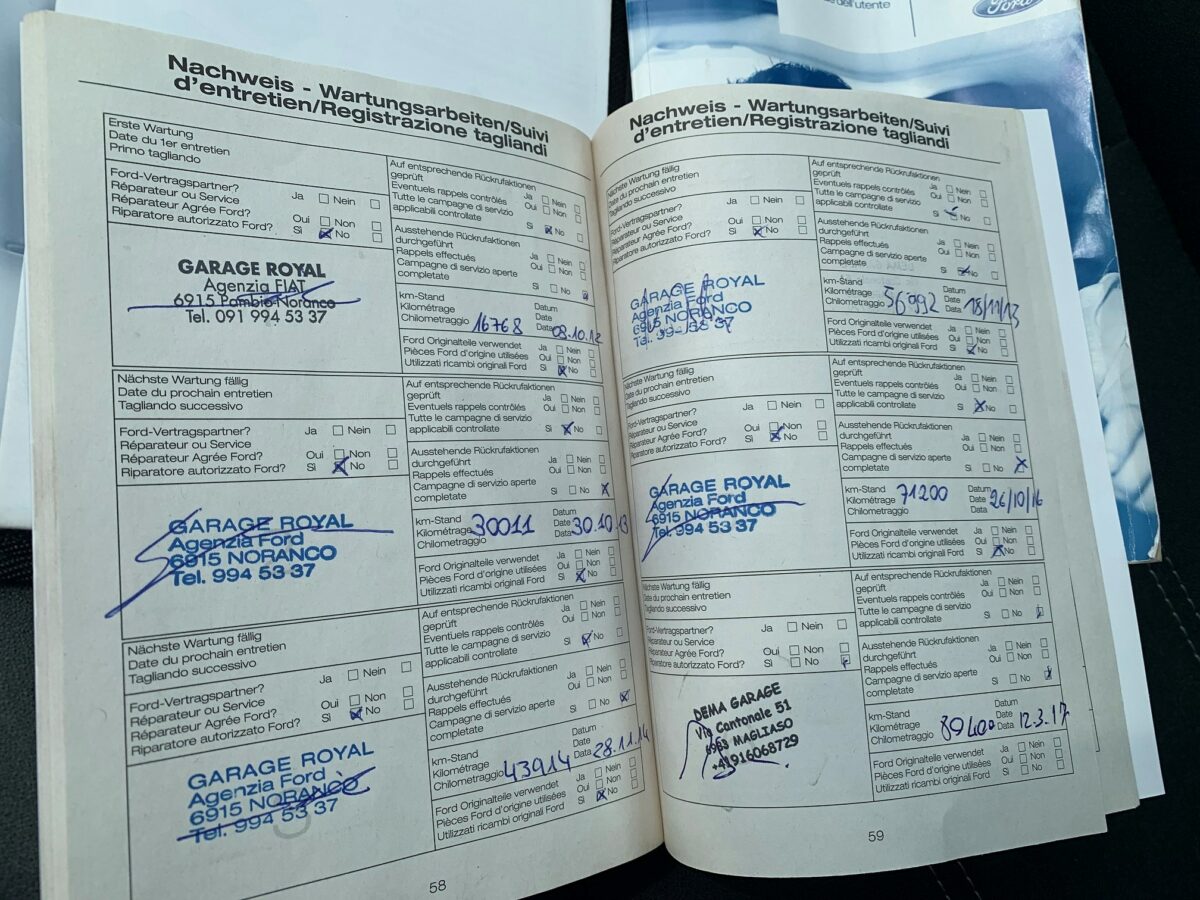 dell'utente
Ford
Nachweis - Wartungsarbeiten/Suivi
d'entretien/Registrazione tagliandi
Erste Wartung
Date du 1er entretien
Primo tagliando
Ford-Vertragspartner?
Réparateur ou Service
Réparateur Agrée Ford?
Riparatore autorizzato Ford?
Ja Nein
Oui Non
Si No
GARAGE ROYAL
Agenzia FIAT
6915 Pambio-Noranco
Tel. 091 994 53 37
Auf entsprechende Rückrufaktionen
geprüft
Eventuels rappels contrôlés
Tutte le campagne di servizio
applicabili controllate
Ja Nein
Oui Non
Si No
Ausstehende Rückrufaktionen
durchgeführt
Rappels effectués
Campagne di servizio aperte
completate
Ja Nein
Oui Non
Si No
km-Stand
Kilométrage
Chilometraggio 16768
Datum
Date
Data 08.10.12
Ford Originalteile verwendet
Pièces Ford d'origine utilisées
Utilizzati ricambi originali Ford
Ja Nein
Oui Non
Si No
Nächste Wartung fällig
Date du prochain entretien
Tagliando successivo
Ford-Vertragspartner?
Réparateur ou Service
Réparateur Agrée Ford?
Riparatore autorizzato Ford?
Ja Nein
Oui Non
Si No
GARAGE ROYAL
Agenzia Ford
6915 NORANCO
Tel. 994 53 37
Auf entsprechende Rückrufaktionen
geprüft
Eventuels rappels contrôlés
Tutte le campagne di servizio
applicabili controllate
Ja Nein
Oui Non
Si No
Ausstehende Rückrufaktionen
durchgeführt
Rappels effectués
Campagne di servizio aperte
completate
Ja Nein
Oui Non
Si No
km-Stand
Kilométrage
Chilometraggio 30011
Datum
Date
Data 30.10.13
Ford Originalteile verwendet
Pièces Ford d'origine utilisées
Utilizzati ricambi originali Ford
Ja Nein
Oui Non
Si No
Nächste Wartung fällig
Date du prochain entretien
Tagliando successivo
Ford-Vertragspartner?
Réparateur ou Service
Réparateur Agrée Ford?
Riparatore autorizzato Ford?
Ja Nein
Oui Non
Si No
GARAGE ROYAL
Agenzia Ford
6915 NORANCO
Tel. 994 53 37
Auf entsprechende Rückrufaktionen
geprüft
Eventuels rappels contrôlés
Tutte le campagne di servizio
applicabili controllate
Ja Nein
Oui Non
Si No
Ausstehende Rückrufaktionen
durchgeführt
Rappels effectués
Campagne di servizio aperte
completate
Ja Nein
Oui Non
Si No
km-Stand
Kilométrage
Chilometraggio 43914
Datum
Date
Data 28.11.14
Ford Originalteile verwendet
Pièces Ford d'origine utilisées
Utilizzati ricambi originali Ford
Ja Nein
Oui Non
Si No
58
Nachweis - Wartungsarbeiten/Suivi
d'entretien/Registrazione tagliandi
Nächste Wartung fällig
Date du prochain entretien
Tagliando successivo
Ford-Vertragspartner?
Réparateur ou Service
Réparateur Agrée Ford?
Riparatore autorizzato Ford?
Ja Nein
Oui Non
Si No
GARAGE ROYAL
Agenzia Ford
6915 NORANCO
Tel.
Auf entsprechende Rückrufaktionen
geprüft
Eventuels rappels contrôlés
Tutte le campagne di servizio
applicabili controllate
Ja Nein
Oui Non
Si No
Ausstehende Rückrufaktionen
durchgeführt
Rappels effectués
Campagne di servizio aperte
completate
Ja Nein
Oui Non
Si No
km-Stand
Kilométrage
Chilometraggio 56992
Datum
Date
Data 18/11/13
Ford Originalteile verwendet
Pièces Ford d'origine utilisées
Utilizzati ricambi originali Ford
Ja Nein
Oui Non
Si No
Nächste Wartung fällig
Date du prochain entretien
Tagliando successivo
Ford-Vertragspartner?
Réparateur ou Service
Réparateur Agrée Ford?
Riparatore autorizzato Ford?
Ja Nein
Oui Non
Si No
GARAGE ROYAL
Agenzia Ford
6915 NORANCO
Tel. 994 53 37
Auf entsprechende Rückrufaktionen
geprüft
Eventuels rappels contrôlés
Tutte le campagne di servizio
applicabili controllate
Ja Nein
Oui Non
Si No
Ausstehende Rückrufaktionen
durchgeführt
Rappels effectués
Campagne di servizio aperte
completate
Ja Nein
Oui Non
Si No
km-Stand
Kilométrage 71200
Chilometraggio
Datum
Date 26/10/16
Data
Ford Originalteile verwendet
Pièces Ford d'origine utilisées
Utilizzati ricambi originali Ford
Ja Nein
Oui Non
Si No
Nächste Wartung fällig
Date du prochain entretien
Tagliando successivo
Ford-Vertragspartner?
Réparateur ou Service
Réparateur Agrée Ford?
Riparatore autorizzato Ford?
Ja Nein
Oui Non
Si No
DEMA GARAGE
Via Cantonale 51
6983 MAGLIASO
+41916068729
Auf entsprechende Rückrufaktionen
geprüft
Eventuels rappels contrôlés
Tutte le campagne di servizio
applicabili controllate
Ja Nein
Oui Non
Si No
Ausstehende Rückrufaktionen
durchgeführt
Rappels effectués
Campagne di servizio aperte
completate
Ja Nein
Oui Non
Si No
km-Stand
Kilométrage
Chilometraggio 89400
Datum
Date
Data 12.3.17
Ford Originalteile verwendet
Pièces Ford d'origine utilisées
Utilizzati ricambi originali Ford
Ja Nein
Oui Non
Si No
59